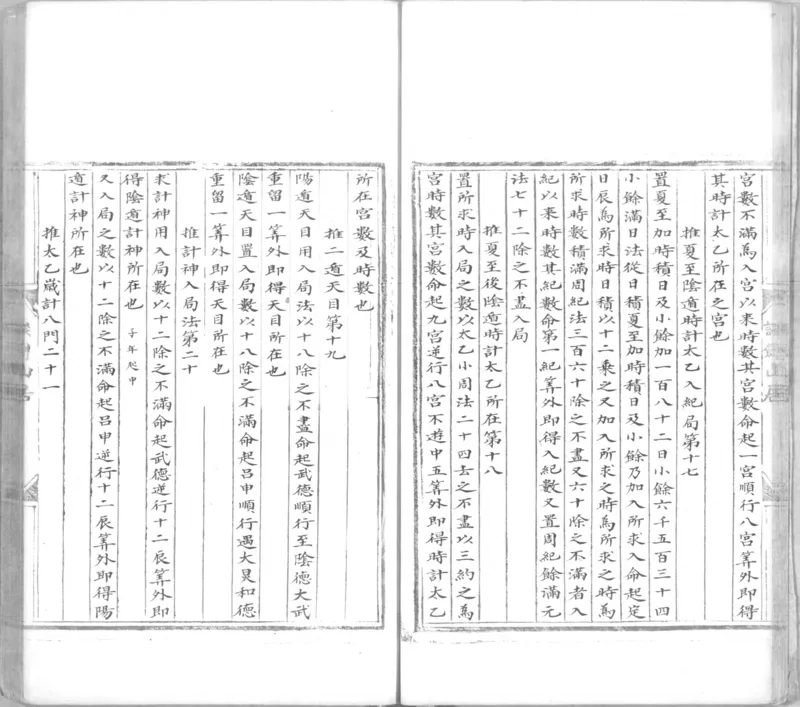 宮數不滿為入宮以來時數其宮數命起一宮順行八宮筭外即得
其時計太乙所在之宮也
推夏至陰遁時計太乙入紀局第十七
置夏至加時積日及小餘加一百八十二日小餘六千五百三十四
小餘滿日法從日積夏至加時積日及小餘乃加入所求入命起定
日辰為所求時日積以十二乘之又加入所求之時為所求之時為
所求時數積滿周紀法三百六十除之不盡又六十除之不滿者入
紀以來時數其紀數命第一紀筭外即得入紀數又置周紀餘滿元
法七十二除之不盡入局
推夏至後陰遁時計太乙所在第十八
置所求時入局之數以太乙小周法二十四去之不盡以三約之為
宮時數其宮數命起九宮逆行八宮不遊中五筭外即得時計太乙
所在宮數及時數也
推二遁天目第十九
陽遁天目用入局法以十八除之不盡命起武德順行至陰德大武
重留一筭外即得天目所在也
陰遁天目置入局數以十八除之不滿命起呂申順行遇大炅和德
重留一筭外即得天目所在也
推計神入局法第二十
求計神用入局數以十二除之不滿命起武德逆行十二辰筭外即
得陰遁計神所在也 子年起申
又入局之數以十二除之不滿命起呂申逆行十二辰筭外即得陽
遁計神所在也
推太乙歲計八門二十一